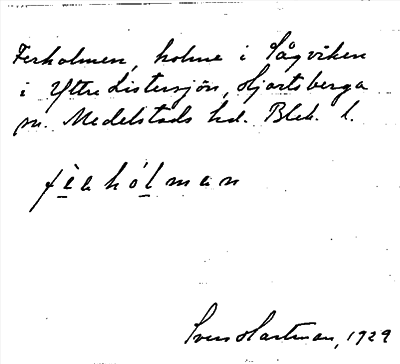 Ferholmen, holme i Sågviken
i Yttre Listersjön, Hjortsberga
sn. Medelstads hd. Blek. l.
fè̱a hó̱lman
Sven Hartman, 1929